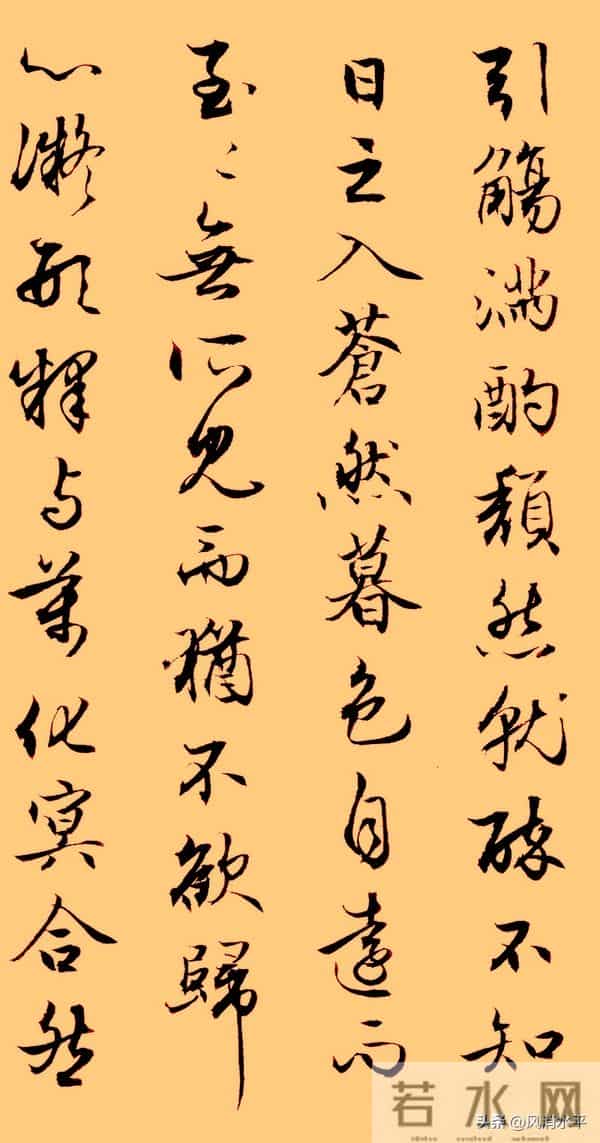 引觴滿酌頽然就醉不知
日之入蒼然暮色自遠而
至〻無所見而猶不欲歸
心凝形釋与萬化冥合然
若水网
头条 @风消水平